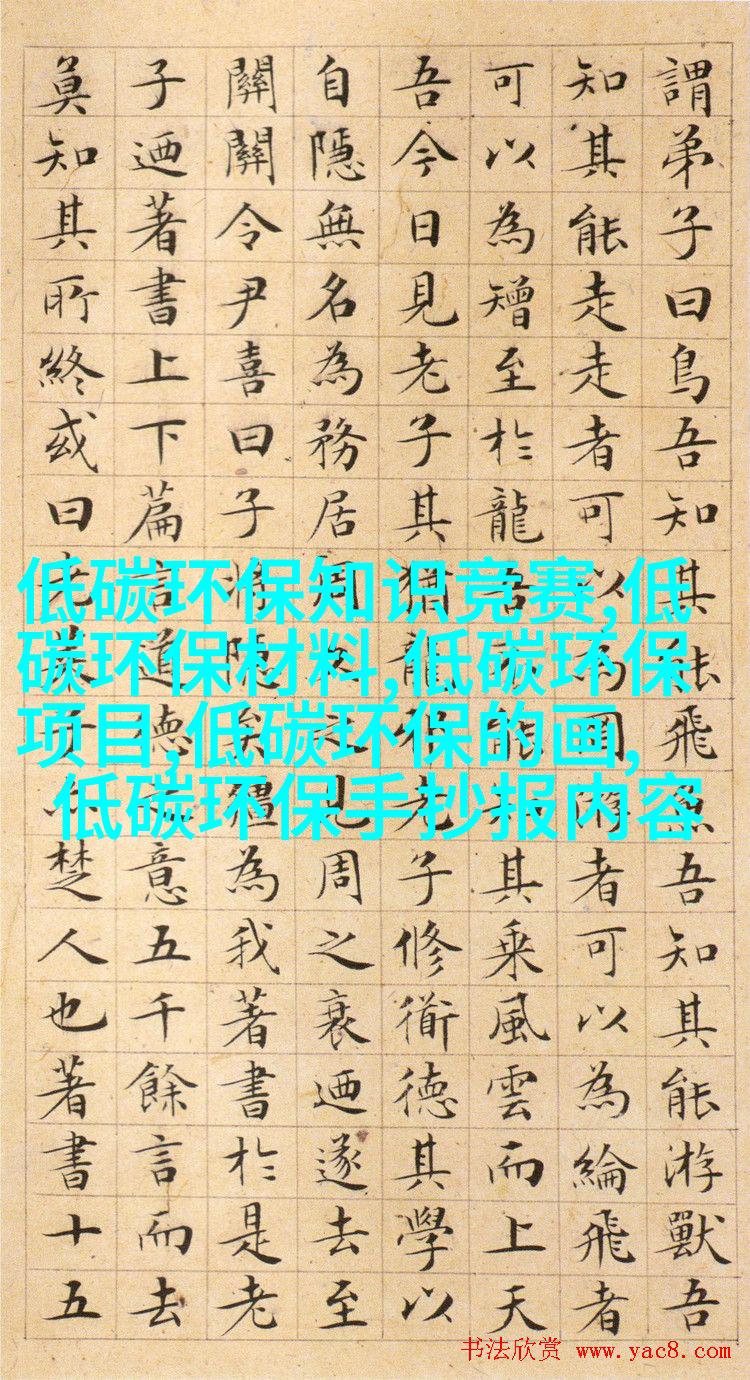 謂弟子曰鳥吾知其能飛魚吾知其能游獸吾
知其能走走者可以為罔游者可以為綸飛者
可以為矰至於龍吾不能知其乘風雲而上天
吾今日見老子其猶龍邪老子修衜德其學以
自隱無名為務居周久之見周之衰迺遂去至
關關令尹喜曰子將隱矣彊為我著書於是老
子迺著書上下篇言道德之意五千餘言而去
莫知其所終或曰老萊子亦楚人也著書十五
低碳环保知识竞赛,低
碳环保材料,低碳环保
项目,低碳环保的画,
低碳环保手抄报内容
书法欣赏 www.yac8.com